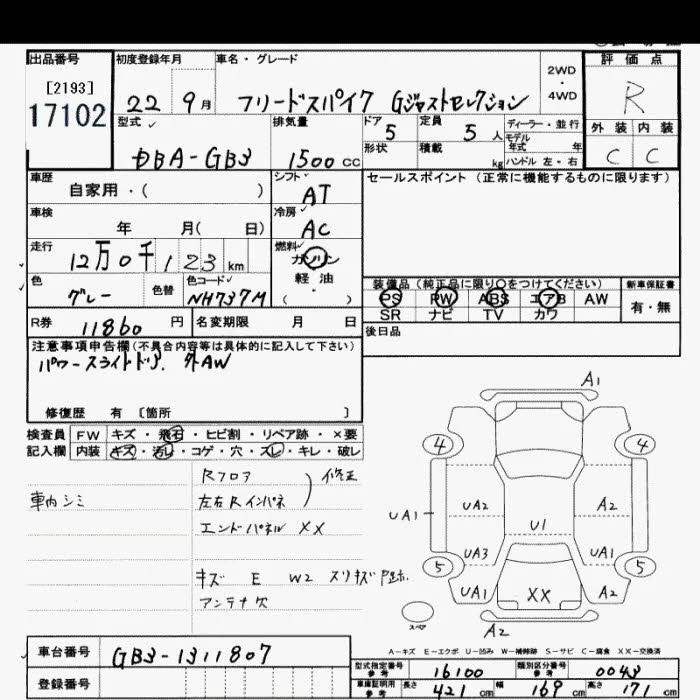 出品番号
[2193]
17102
初度登録年月
22 9月
車名・グレード
フリードスパイク Gジャストセレクション
2WD
・
4WD
評価点
R
外装 内装
C C
型式
DBA-GB3
排気量
1500 CC
ドア
5
定員
5 人
形状
積載
kg
ディーラー・並行
モデル
年式 年
ハンドル 左・右
車歴
自家用・( )
シフト
AT
セールスポイント (正常に機能するものに限ります)
車検
年 月( 日)
冷房
AC
走行
12万0千123km
燃料
ガソリン
軽油
・
( )
色
グレー
色替
色コード
NH737M
装備品 (純正品に限り○をつけてください)
PS PW ABS エアB AW
SR ナビ TV カワ
新車保証書
有・無
R券
11860 円
名変期限 月 日
後日品
注意事項申告欄(不具合内容等は具体的に記入して下さい)
パワースライドドア. 外AW
修復歴 有 〔箇所 〕
検査員
記入欄
FW キズ・飛石・ヒビ割・リペア跡・×要
内装 キズ・汚レ・コゲ・穴・スレ・キレ・破レ
車内シミ
Rフロア
左右Rインパネ
修正
エンドパネル XX
キズ E W2 スリキズ
アンテナ欠
A1
4 4
UA2 A2
UA1 U1
UA3 UA1
5 5
UA1 XX A2
スペア
A2
A-キズ E-エクボ U-凹み W-補修跡 S-サビ C-腐食 XX-交換済
車台番号
GB3-1311807
登録番号
型式指定番号
参考
16100
類別区分番号
参考
0043
車庫証明用
参考
長さ 421 cm
幅 169 cm
高さ 171 cm